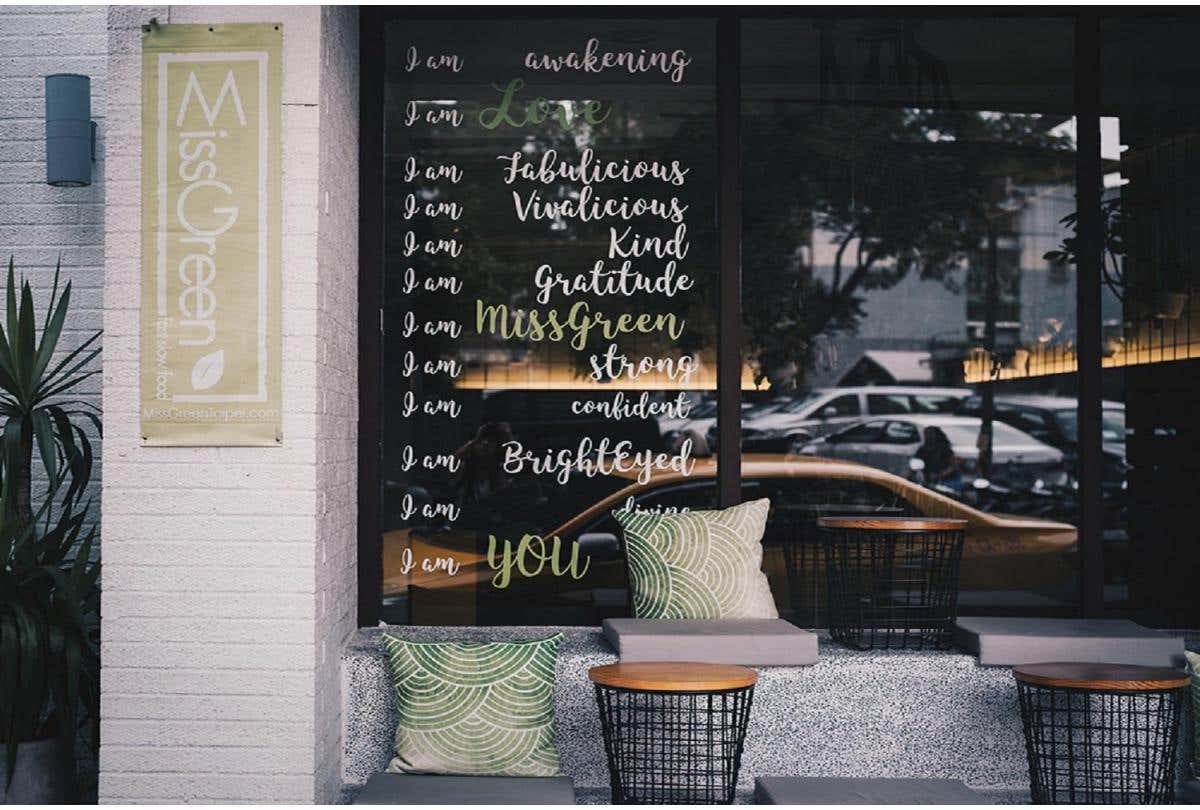 MissGreen
MissGreenTaipei.com
I am awakening
I am Love
I am Fabulicious
I am Vivalicious
I am Kind
I am Gratitude
I am MissGreen
I am strong
I am confident
I am BrightEyed
I am divine
I am YOU